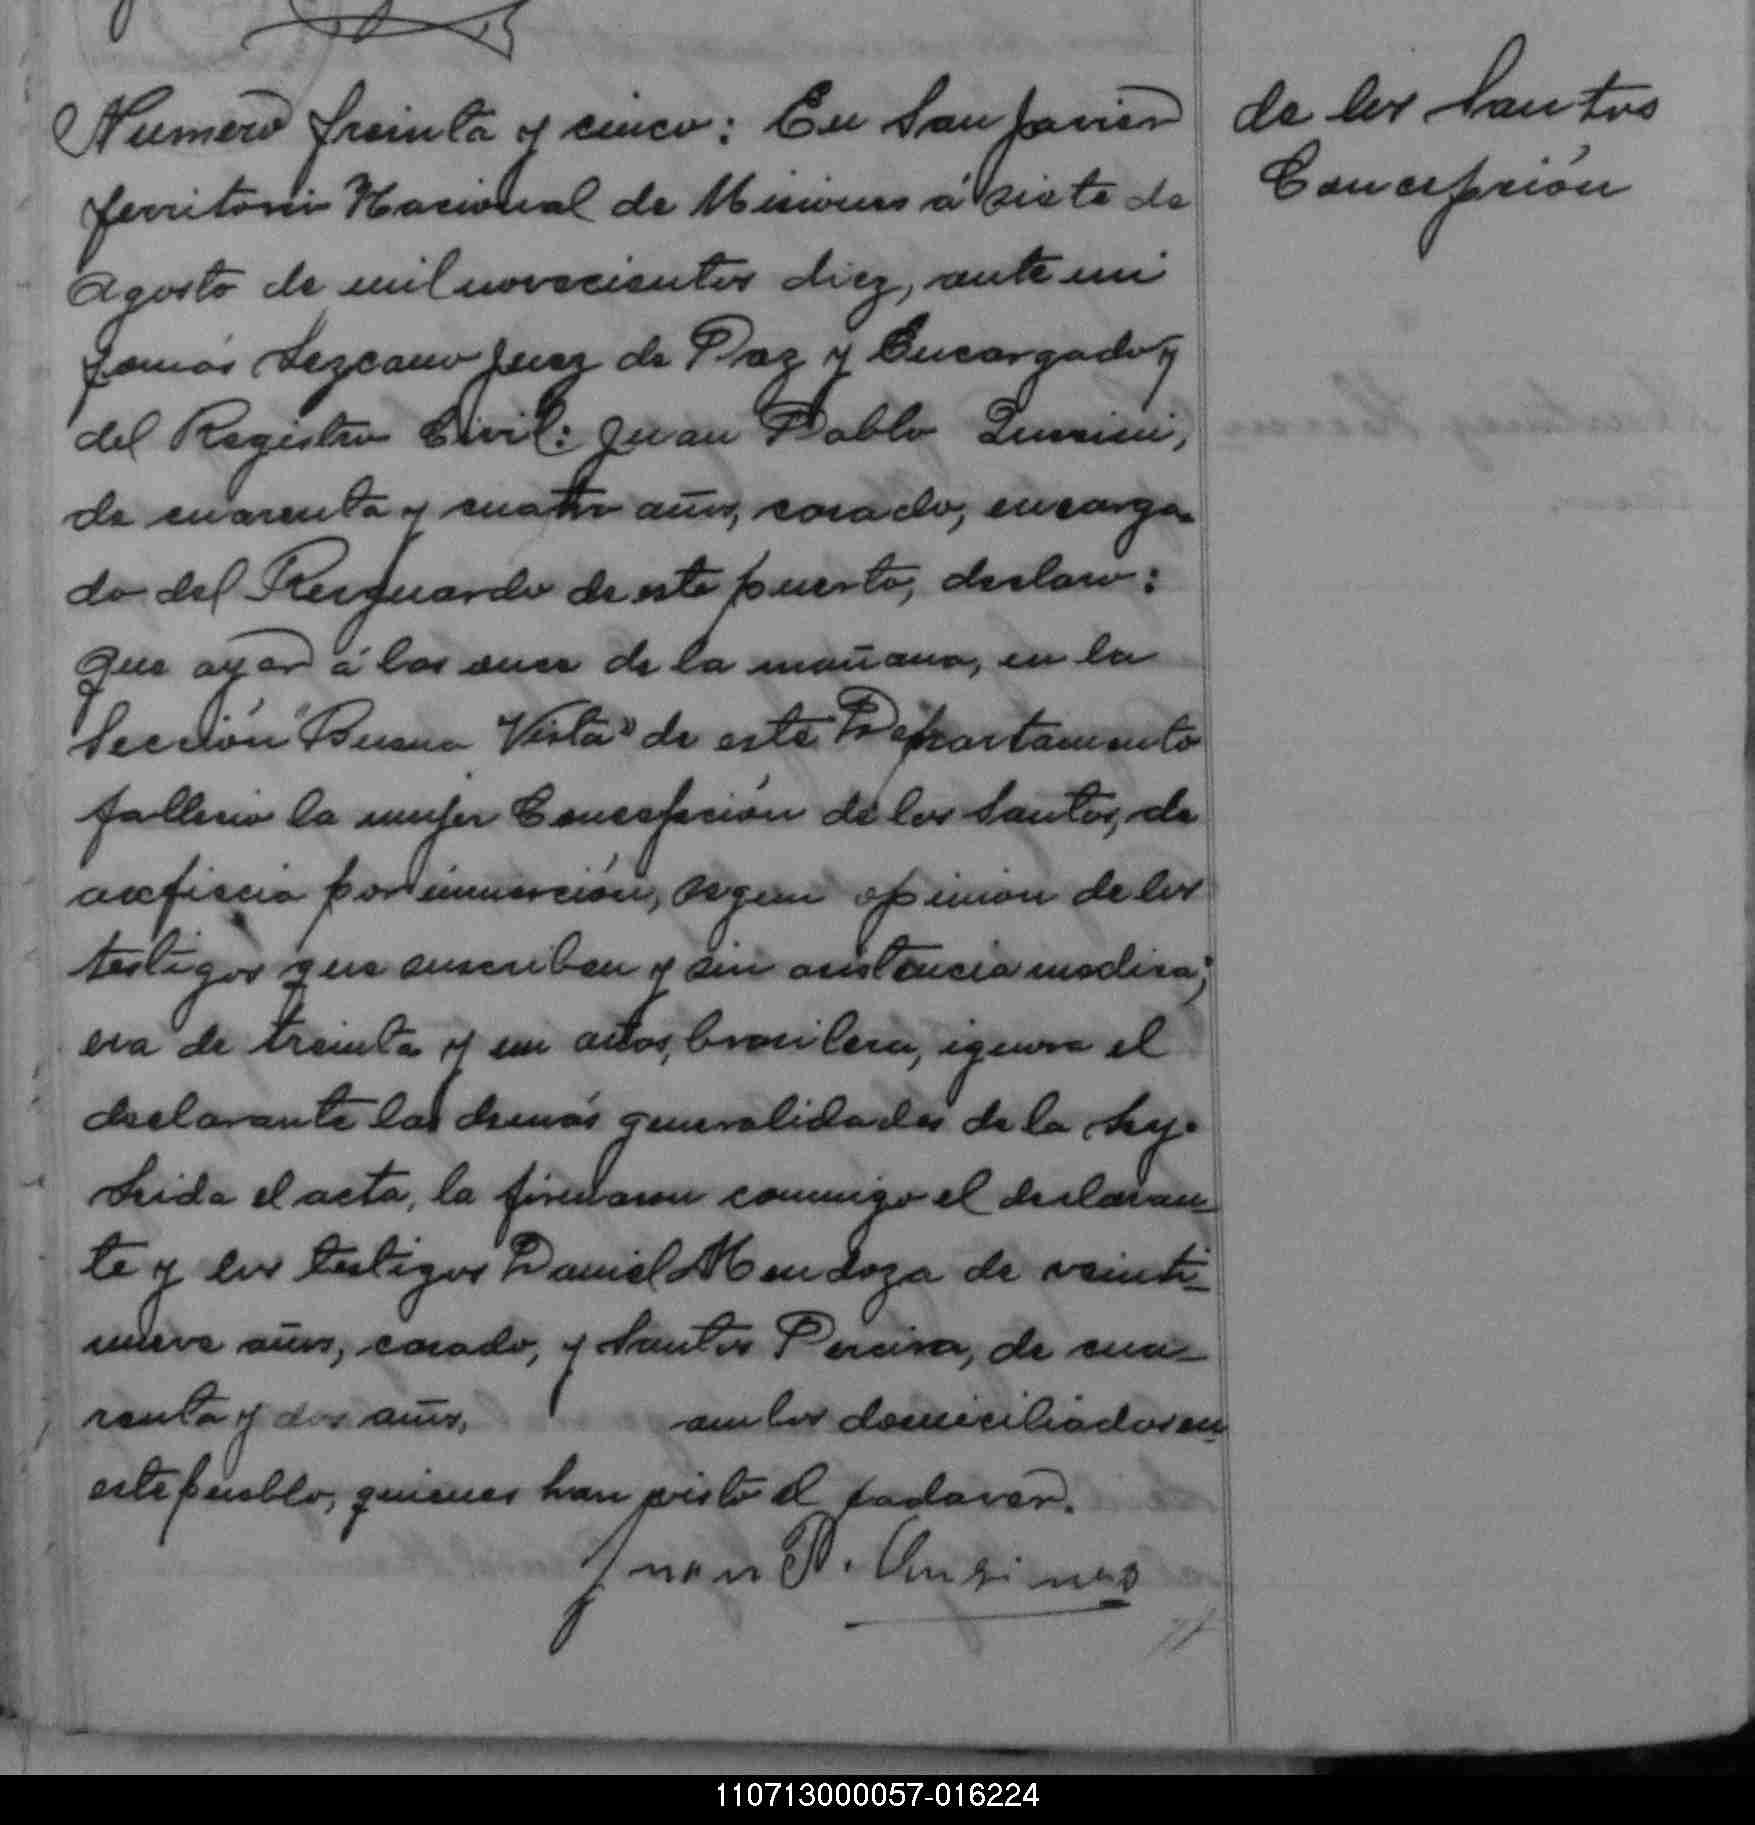 Numero treinta y cinco: En San Javier
territorio Nacional de Misiones á siete de
Agosto de mil novecientos diez, ante mi
Tomás Lezcano Juez de Paz y Encargado
del Registro Civil: Juan Pablo
de cuarenta y cuatro años, casado, encarga-
do del Resguardo de este puerto, declaro:
Que ayer á las once de la mañana, en la
Sección "Buena Vista" de este Departamento
fallecio la mujer Concepción de los Santos, de
axficcia por inmerción, segun opinion de los
testigos que suscriben y sin asistencia medica;
era de treinta y un años, brasilera, ignora el
declarante las demás generalidades de la
Leida el acta, la firmaron conmigo el declaran-
te y los testigos Daniel Mendoza de veinti-
nueve años, casado, y Santos Pereira, de cua-
renta y dos años, ambos domiciliados en
este pueblo, quienes han visto el cadaver.
Juan P.
de los Santos
Concepción
110713000057-016224